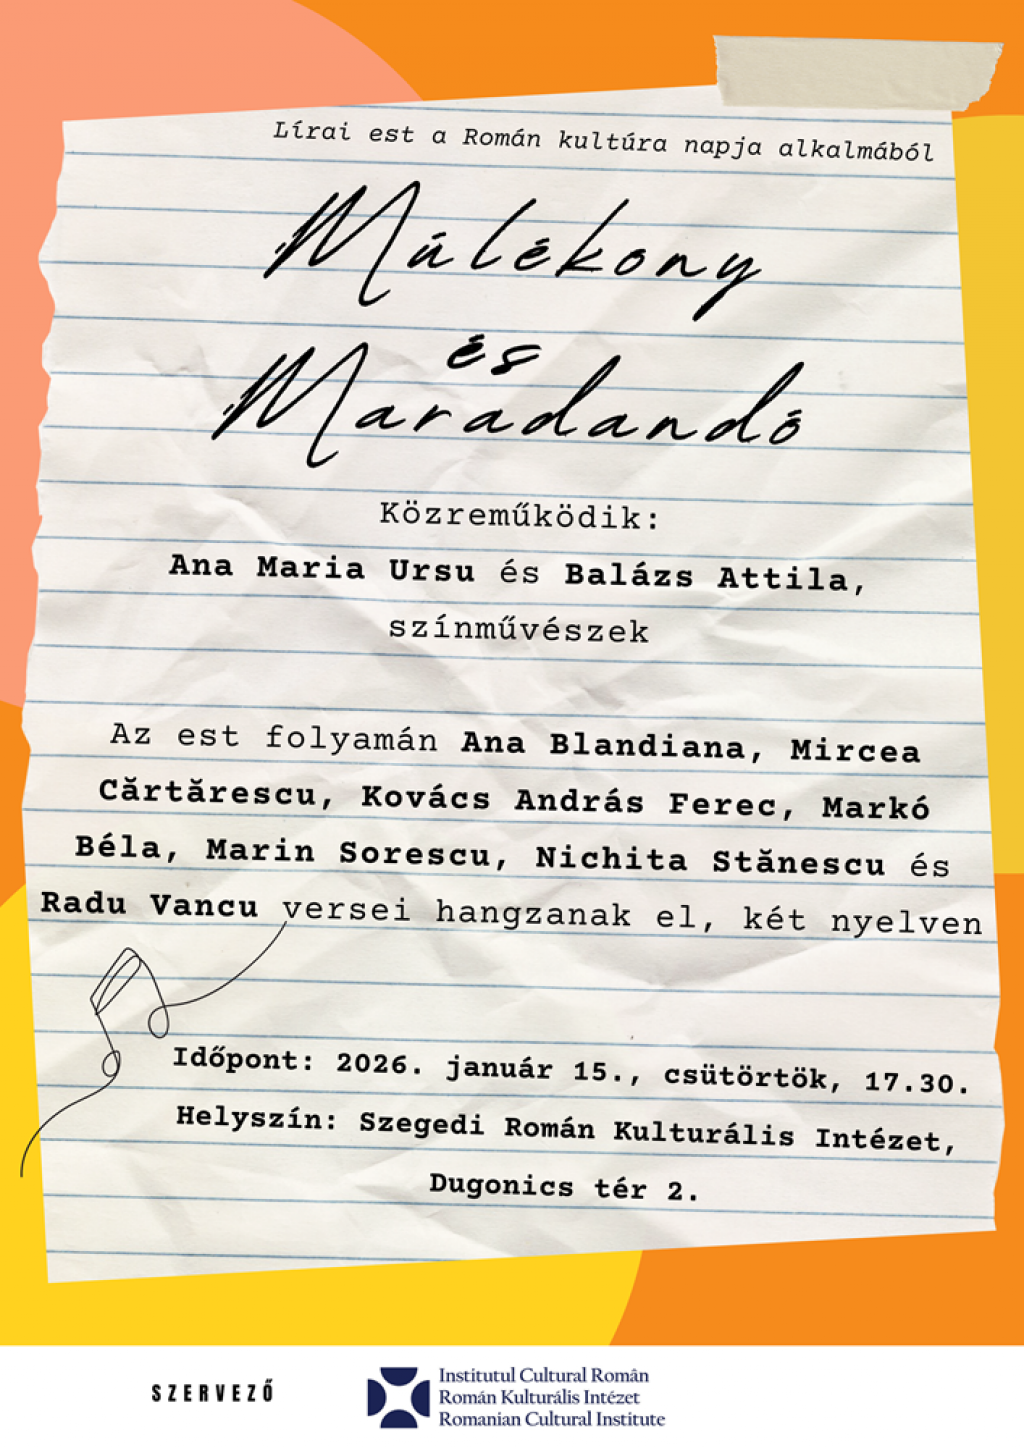 Lírai est a Román kultúra napja alkalmából
Múlékony
és
Maradandó
Közreműködik:
Ana Maria Ursu és Balázs Attila,
színművészek
Az est folyamán Ana Blandiana, Mircea
Cărtărescu, Kovács András Ferec, Markó
Béla, Marin Sorescu, Nichita Stănescu és
Radu Vancu versei hangzanak el, két nyelven
Időpont: 2026. január 15., csütörtök, 17.30.
Helyszín: Szegedi Román Kulturális Intézet,
Dugonics tér 2.
SZERVEZŐ
Institutul Cultural Român
Román Kulturális Intézet
Romanian Cultural Institute